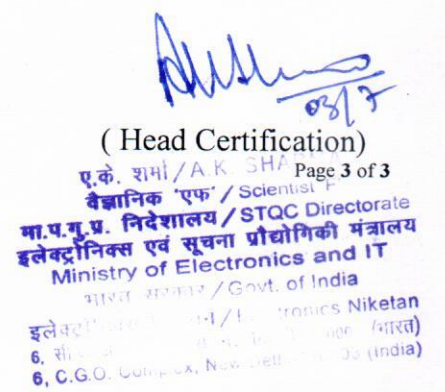 03/7
( Head Certification)
Page 3 of 3
ए.के. शर्मा / A.K. SHARMA
वैज्ञानिक 'एफ' / Scientist 'F'
मा.प.गु.प्र. निदेशालय / STQC Directorate
इलेक्ट्रॉनिक्स एवं सूचना प्रौद्योगिकी मंत्रालय
Ministry of Electronics and IT
भारत सरकार / Govt. of India
Niketan
6, (भारत)
6, C.G.O. Complex, New (India)